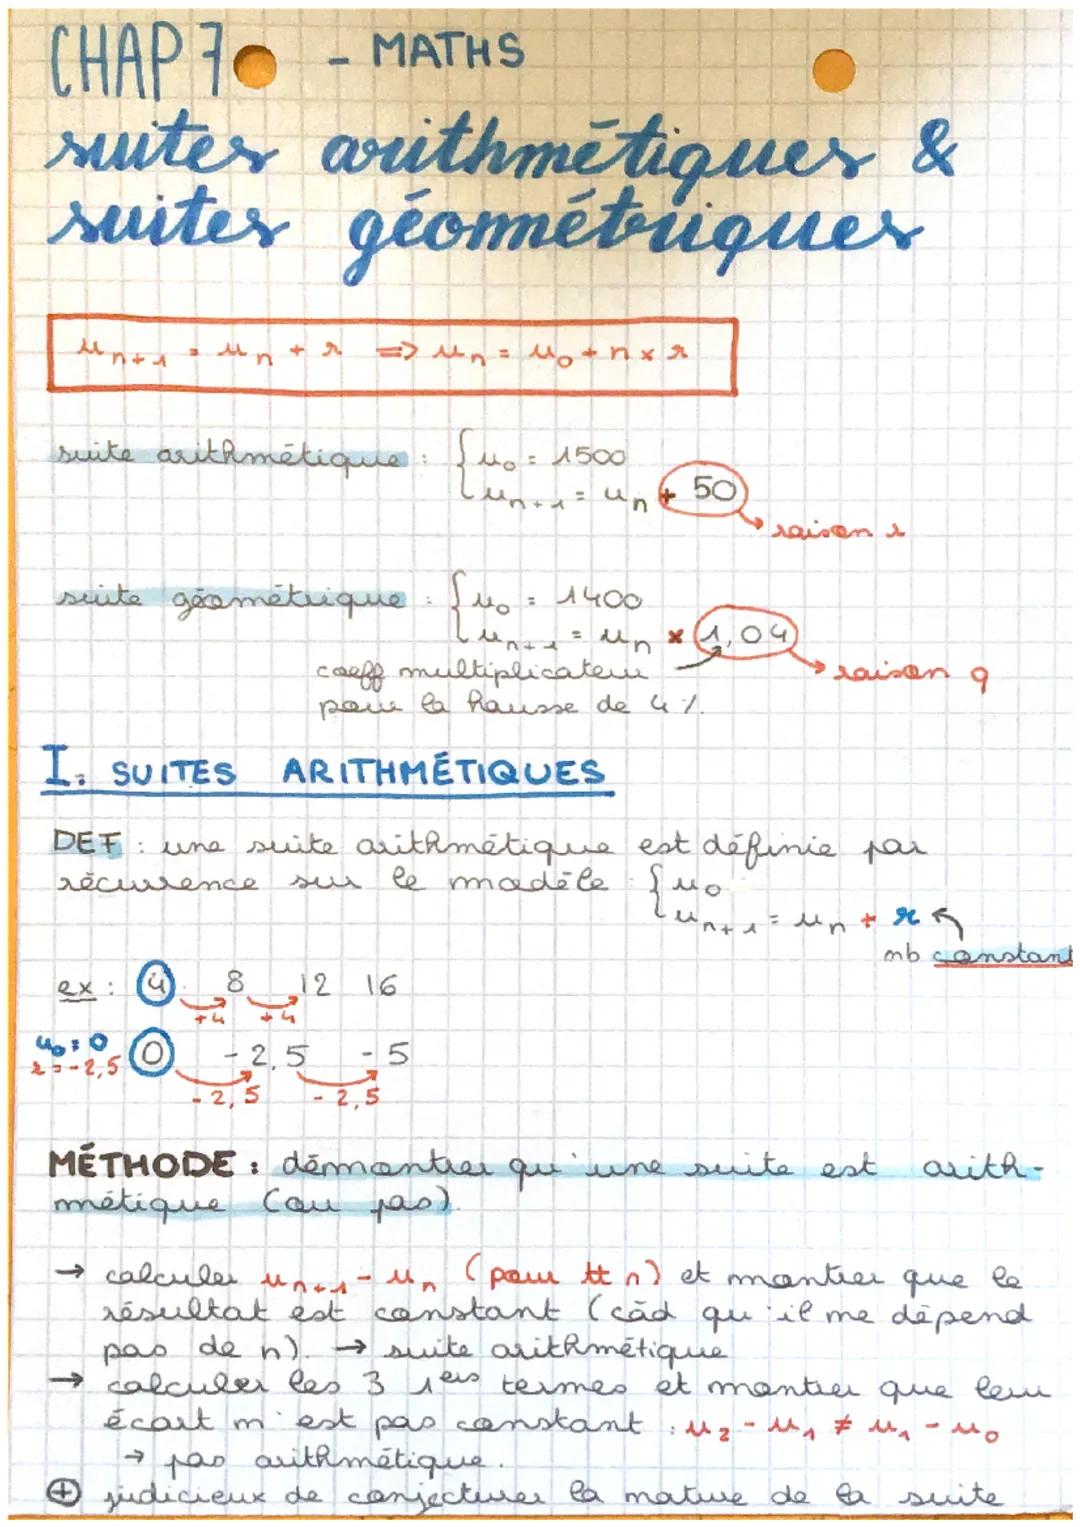 CHAP 7 - MATHS
suites arithmétiques &
suites géométriques
u n+1 = u n + r => u n = u 0 + n x r
suite arithmétique : { u 0 = 1500
u n+1 = u n + 50
raison r
suite géométrique : { u 0 = 1400
u n+1 = u n x 1,04
coeff multiplicateur
raison q
pour la hausse de 4 %.
I. SUITES ARITHMÉTIQUES
DEF : une suite arithmétique est définie par
récurrence sur le modèle { u 0
u n+1 = u n + r
nb constant
ex : 4 8 12 16
+4 +4
u 0 = 0
r = -2,5 0 -2,5 -5
-2,5 -2,5
MÉTHODE : démontrer qu'une suite est arith-
métique (ou pas).
→ calculer u n+1 - u n (pour tt n) et montrer que le
résultat est constant (càd qu'il ne dépend
pas de n). → suite arithmétique
→ calculer les 3 1ers termes et montrer que leur
écart n'est pas constant : u 2 - u 1 ≠ u 1 - u 0
→ pas arithmétique.
⊕ judicieux de conjecturer la nature de la suite